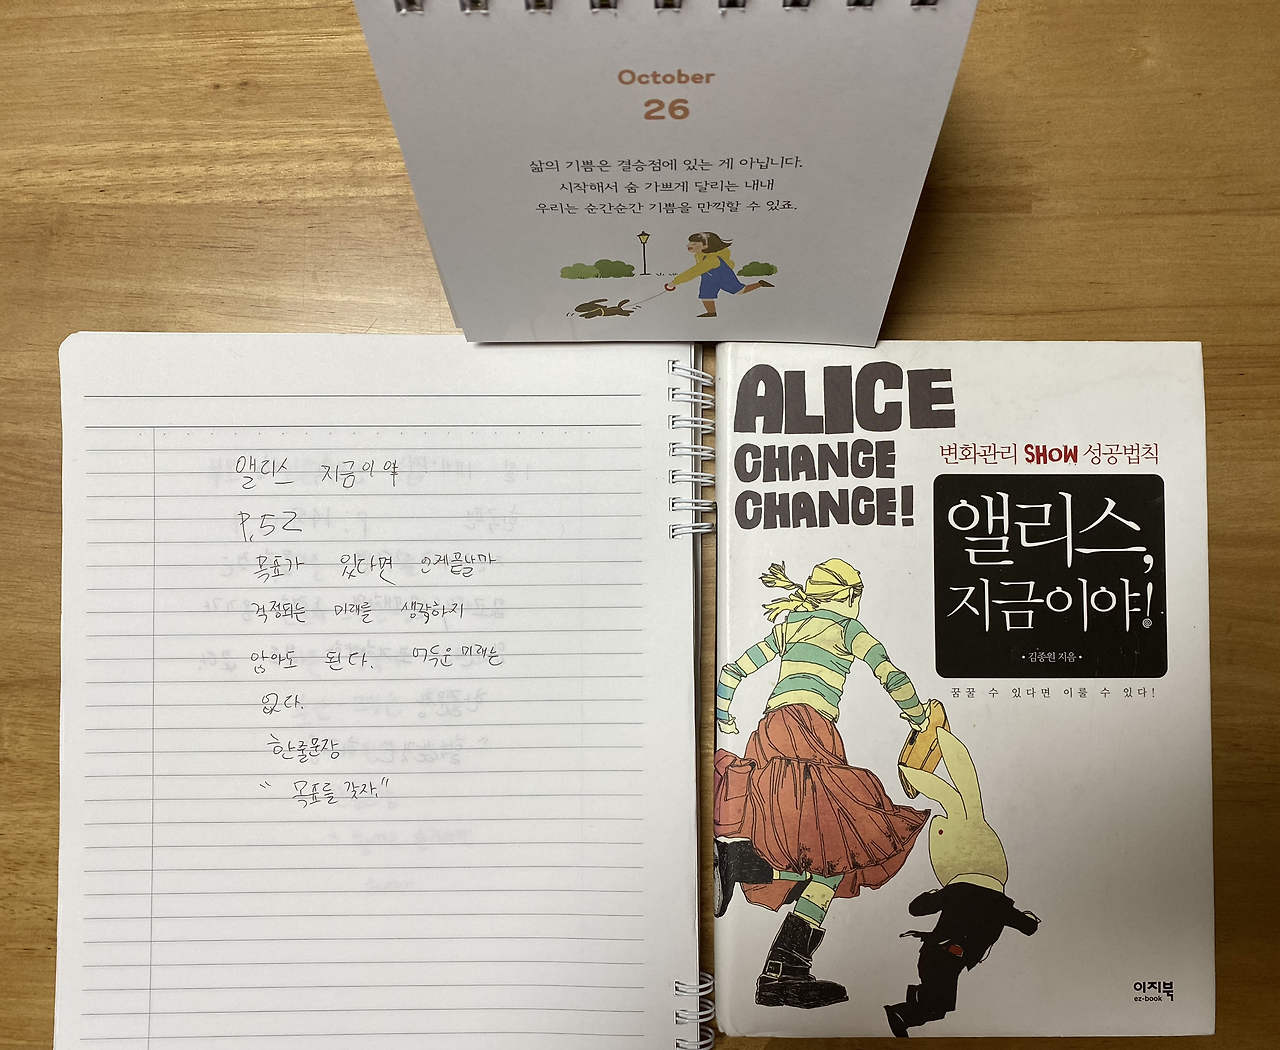 October
26
삶의 기쁨은 결승점에 있는 게 아닙니다.
시작해서 숨 가쁘게 달리는 내내
우리는 순간순간 기쁨을 만끽할 수 있죠.
앨리스 지금이야
P.52
목표가 있다면 언제끝날까
걱정되는 미래를 생각하지
않아도 된다. 어두운 미래는
없다.
한줄문장
"목표를 갖자."
ALICE
CHANGE
CHANGE!
변화관리 SHOW 성공법칙
앨리스,
지금이야!
• 김종원 지음 •
꿈꿀 수 있다면 이룰 수 있다!
이지북
ez-book